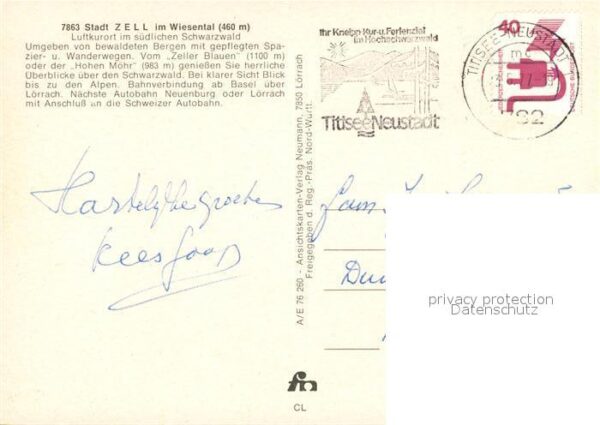 7863 Stadt ZELL im Wiesental (460 m)
Luftkurort im südlichen Schwarzwald
Umgeben von bewaldeten Bergen mit gepflegten Spa-
zier- u. Wanderwegen. Vom „Zeller Blauen" (1100 m)
oder der „Hohen Möhr" (983 m) genießen Sie herrliche
Überblicke über den Schwarzwald. Bei klarer Sicht Blick
bis zu den Alpen. Bahnverbindung ab Basel über
Lörrach. Nächste Autobahn Neuenburg oder Lörrach
mit Anschluß an die Schweizer Autobahn.
Ihr Kneipp Kur-u. Ferienziel
im Hochschwarzwald
Titisee Neustadt
TITISEE-NEUSTADT
mc
782
40
Hartelijke groeten
Kees Joop
A/E 76 260 - Ansichtskarten-Verlag Neumann, 7850 Lörrach
Freigegeben d. Reg.-Präs. Nord-Württ.
Fam
privacy protection
Datenschutz
CL